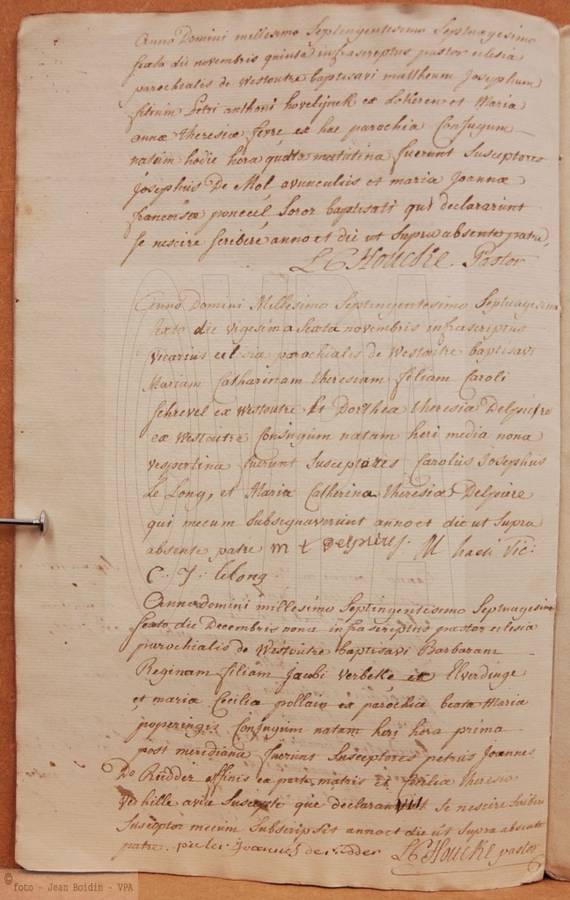 Anno Domini millesimo Septingentesimo Septuagesimo
sexto die novembris quinta infrascriptus pastor eclesia
parochiales de Westoutre baptisavi mattheum Josephum
filium Petri anthoni hovelijnck ex Lokeren et Maria
annæ Theresiæ ferre ex hac parochia Conjugum
natum hodie hora quarta matutina fuerunt Susceptores
Josephus De Mol avunculus et maria Joannæ
francoisæ soror baptisati qui declararunt
se nescire scribere anno et die ut supra absente patre,
Houcke. Pastor
Anno Domini Millesimo Septingentesimo Septuagesimo
sexto die vigesima sexta novembris infrascriptus
Vicarius eclsia parochialis de Westoutre baptisavi
Mariam Catharinam theresiam filiam Caroli
Schrevel ex Westoutre Et Dorthea theresia Delpiere
ex Westoutre Conjugum natam heri media nona
vespertina fuerunt Susceptores Carolus Josephus
Le Long, et Maria Catherina Theresiæ Delpiere
qui mecum Subsignaverunt anno et die ut Supra
absente patre m t Delpiere. Vic:
C: J: lelong
Anno domini millesimo Septingentesimo Septuagesimo
sexto die Decembris nona infrascriptus pastor eclesia
parochialis de Westoutre baptisavi Barbaram
Reginam filiam Jacobi verbeke ex Elverdinge
et maria Cecilia pollain ex parochia beata Maria
poperingis Conjugum natam heri hora prima
post meridiana fuerunt Susceptores petrus Joannes
De Ridder affinis ex parte matris et Cecilia theresia
avia Susceptæ que declaravit se nescire scribere
Susceptor mecum Subscripsit anno et die ut Supra absente
patre. Joannes de ridder Houcke pastor
© foto - Jean Boidin - VPA